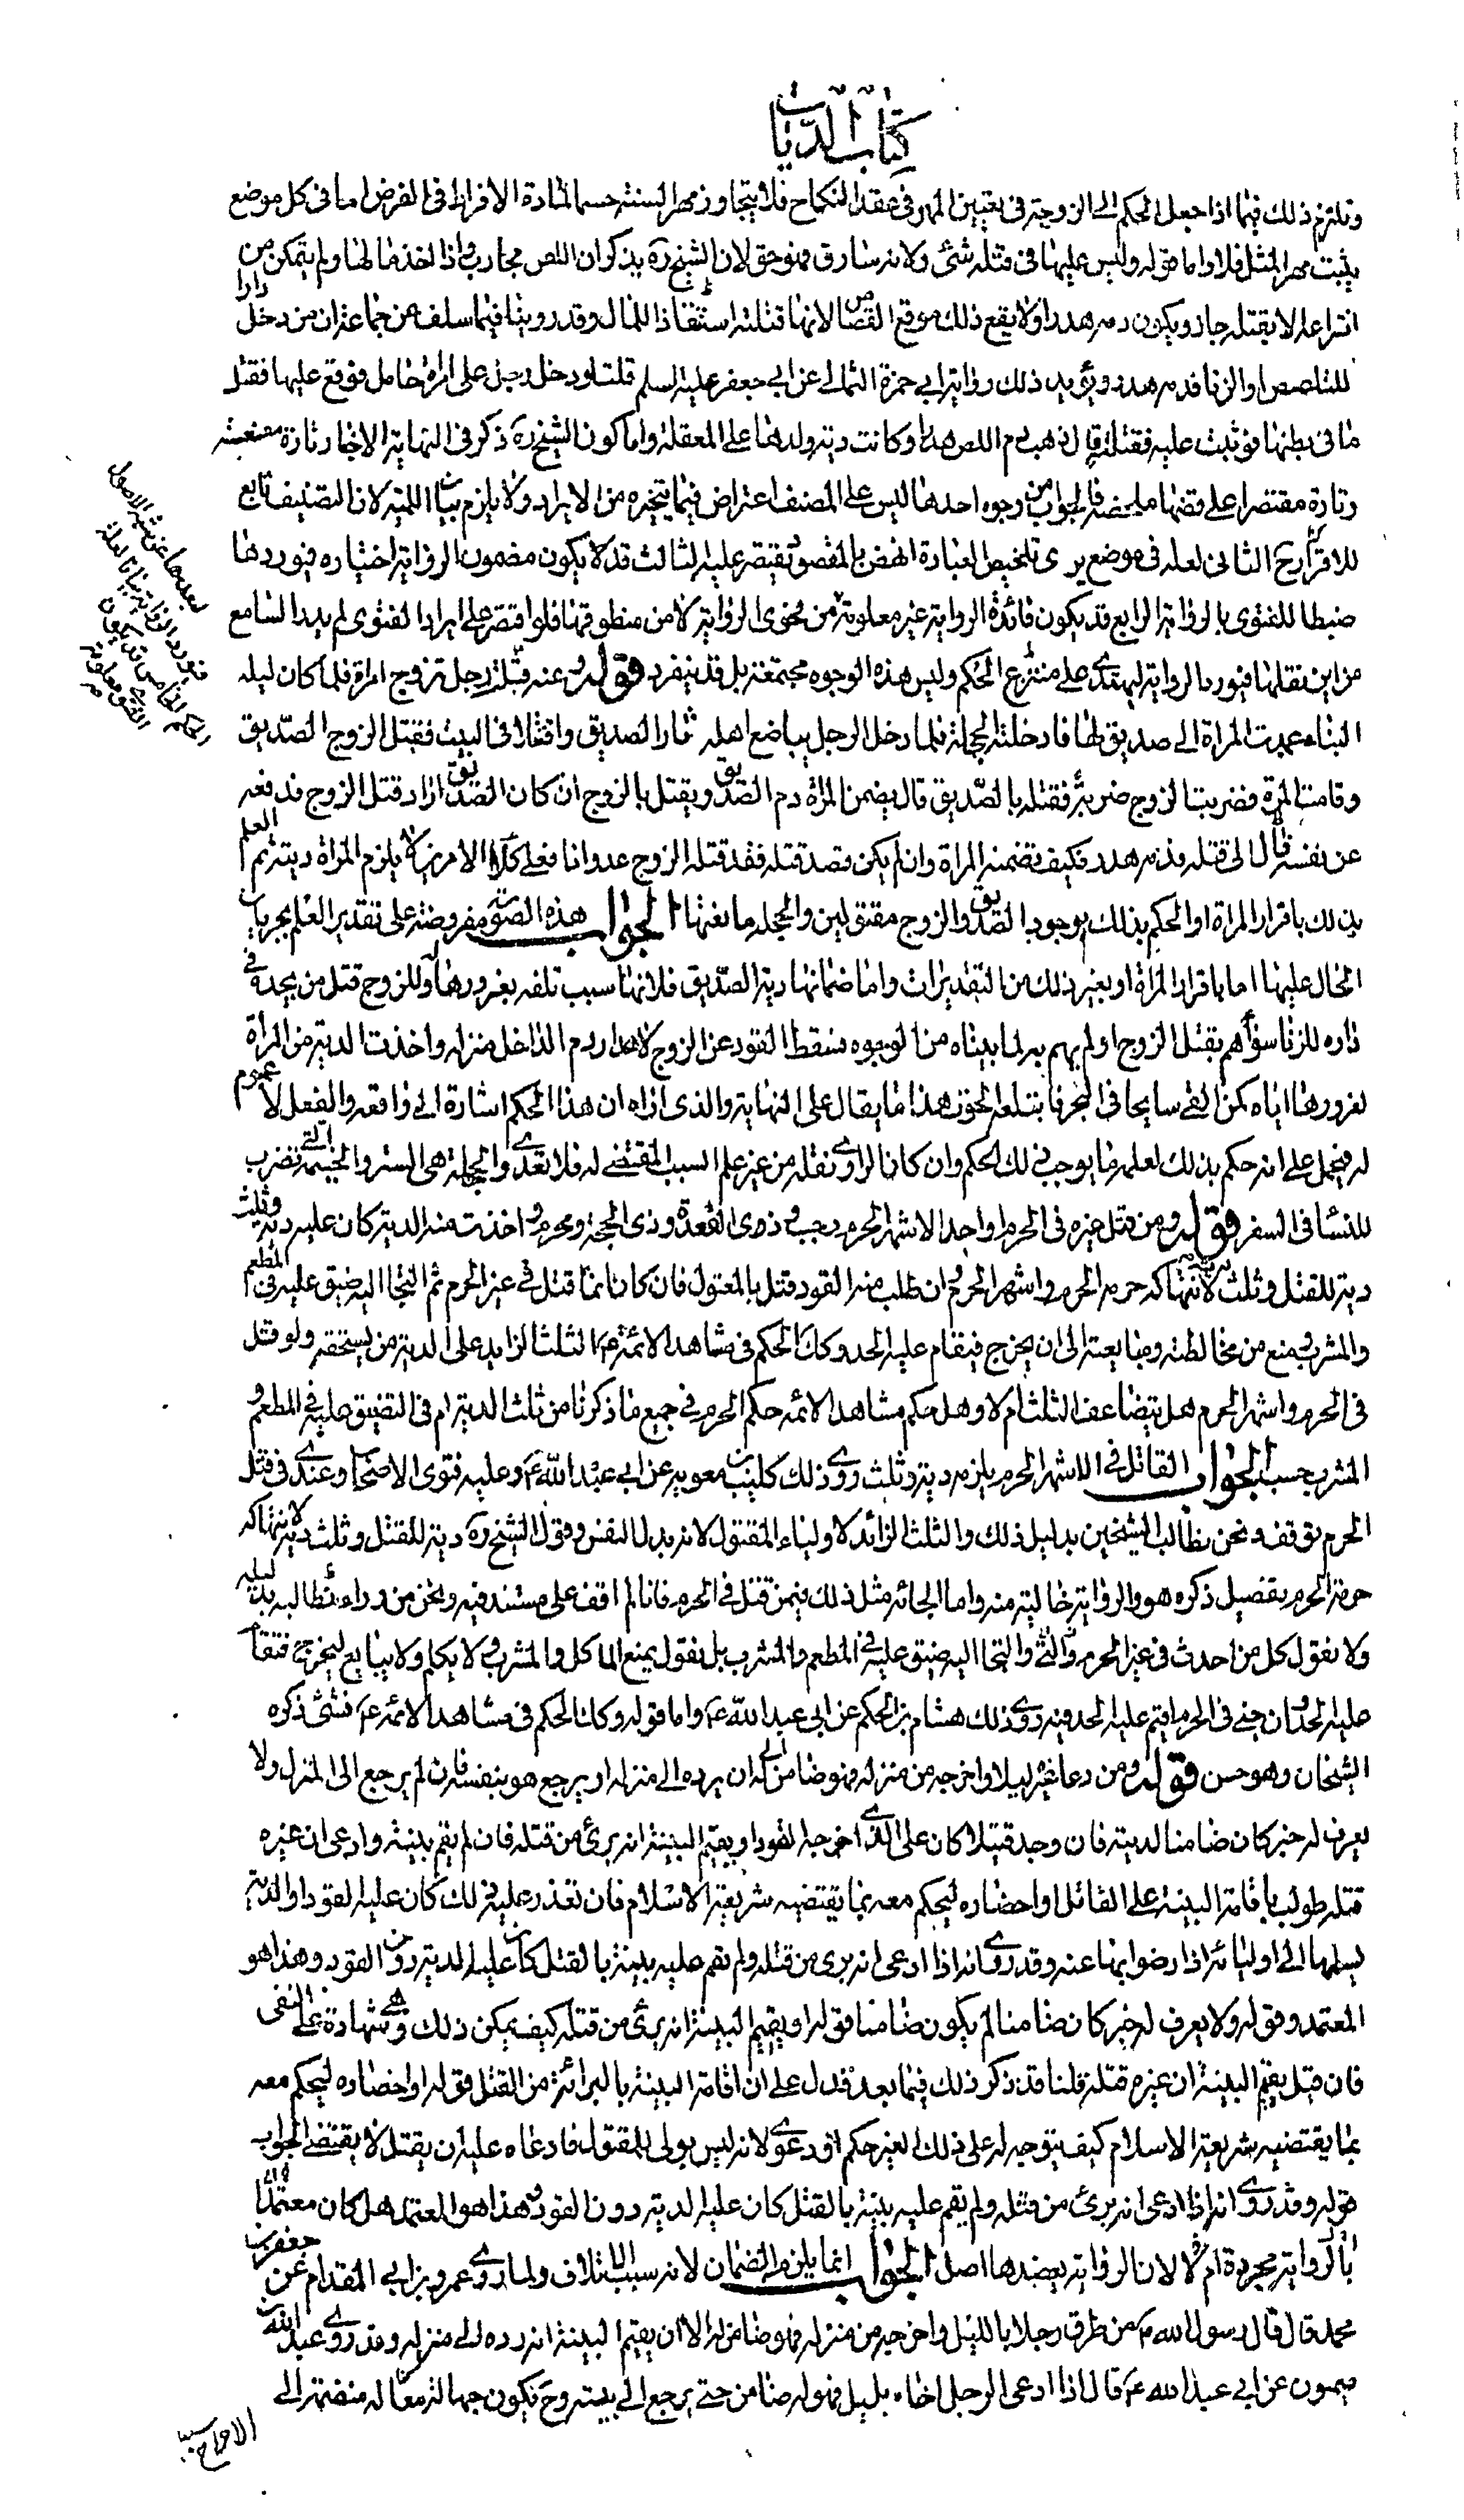 كتاب الديات
ونلتزم ذلك فيما اذا جعل الحكم الى الزوجة فى تعيين المهر فى عقد النكاح فلا يتجاوز مهر السنة حسما لمادة الافراط فى الفرض اما فى كل موضع
يثبت مهر المثل فلا واما قوله وليس عليها فى قتله شئ ولانه سارق فهو حق لان الشيخ ره يذكر ان اللص محارب واذا اخذ مالها ولم يتمكن من
انتزاعه الا بقتله جاز ويكون دمه هدرا ولا يقع ذلك موقع القصاص لانها قتلته استنقاذا للمال وقد روينا فيما سلف عن جماعة ان من دخل دارا
للتلصص او الزنا فدمه هدر ويؤيد ذلك رواية ابى حمزة الثمالى عن ابى جعفر عليه السلم قلت لو دخل رجل على امراة حامل فوقع عليها فقتل
ما فى بطنها فوثبت عليه فقتلته قال ذهب دم اللص هدرا وكانت دية ولدها على المعقلة واما كون الشيخ ره ذكر فى النهاية الاخبار تارة
وتارة مقتصرا على فالجواب من وجوه احدها ليس على المصنف اعتراض فيما يتخيره من الايراد ولا يلزم بيان اللمية لان التصنيف تابع
للاقتراح الثانى لعله فى موضع يرى تلخيص العبارة انهض بالمقصود فيقتصر عليه الثالث قد لا يكون مضمون الرواية اختياره فيوردها
ضبطا للفتوى بالرواية الرابع قد يكون فائدة الرواية غير معلومة من فحوى الرواية لا من منطوقها فلو اقتصر على ايراد الفتوى لم يدر السامع
من اين نقلها فيورد الرواية ليهتدى على منتزع الحكم وليس هذه الوجوه مجتمعة بل قد ينفرد قوله عنه قلت رجل تزوج امراة فلما كان ليلة
البناء عمدت المراة الى صديق لها فادخلته الحجلة فلما دخل الرجل يباضع اهله ثار الصديق واقتتلا فى البيت فقتل الزوج الصديق
وقامت المراة فضربت الزوج ضربة فقتلته بالصديق قال يضمن المراة دم الصديق ويقتل بالزوج ان كان الصديق اراد قتل الزوج فدفعه
عن نفسه فآل الى قتله فدمه هدر فكيف تضمنه المراة وان لم يكن قصد قتله فقد قتله الزوج عدوانا فعلى كلا الامرين لا يلزم المراة ديته ثم العلم
بذلك باقرار المراة او الحكم بذلك بوجود الصديق والزوج مقتولين والحجلة ما نعتها الجواب هذه الصورة مفروضة على تقدير العلم بجريان
الحال عليها اما باقرار المراة او بغير ذلك من التقديرات واما ضمانها دية الصديق فلانها سبب تلفه بغرورها وللزوج قتل من يجده فى
داره للزنا سواء هم بقتل الزوج او لم يهم به لما بيناه من الوجوه فسقط القود عن الزوج لاهدار دم الداخل منزله واخذت الدية من المراة
لغرورها اياه كمن القى سابحا فى البحر فابتلعه الحوت هذا ما يقال على النهاية والذى اراه ان هذا الحكم اشارة الى واقعة والفعل لا عموم
له فيحمل على انه حكم بذلك لعلمه بما يوجب ذلك الحكم وان كان الراوى نقله من غير علم السبب المقتضى له فلا تعدى والحجلة هى الستر والخيمة التى تضرب
للنسا فى السفر قوله ومن قتل غيره فى الحرم او احد الاشهر الحرم رجب وذى القعدة وذى الحجة ومحرم واخذت منه الدية كان عليه دية وثلث
دية للقتل وثلث لانتهاكه حرمة الحرم واشهر الحرم وان طلب منه القود قتل بالمقتول فان كان انما قتل فى غير الحرم ثم التجا اليه ضيق عليه فى المطعم
والمشرب ومنع من مخالطته ومبايعته الى ان يخرج فيقام عليه الحد وكك الحكم فى مشاهد الائمة ع الثلث الزايد على الدية من يستحقه ولو قتل
فى الحرم واشهر الحرم هل يتضاعف الثلث ام لا وهل حكم مشاهد الائمة حكم الحرم فى جميع ما ذكرنا من ثلث الدية ام فى التضييق عليه فى المطعم و
المشرب حسب الجواب القاتل فى الاشهر الحرم يلزمه دية وثلث روى ذلك كليب بن معوية عن ابى عبد الله ع وعليه فتوى الاصحاب وعندى فى قتل
الحرم توقف ونحن نطالب الشيخين بدليل ذلك والثلث الزائد لاولياء المقتول لانه بدل النفس وقول الشيخ ره دية للقتل وثلث دية لانتهاكه
حرمة الحرم تفصيل ذكره هو والرواية خالية منه واما الجائه مثل ذلك فيمن قتل فى الحرم فانا لم اقف على مستند فيه ونحن من وراء نطالبه بدليله
ولا نقول كل من احدث فى غير الحرم والتجا اليه ضيق عليه فى المطعم والمشرب بل نقول يمنع الماكل والمشرب ولا يكلم ولا يبايع ليخرج فيقام
عليه الحد وان جنى فى الحرم اقيم عليه الحد فيه روى ذلك هشام بن الحكم عن ابى عبد الله ع واما قوله وكك الحكم فى مشاهد الائمة ع فشئ ذكره
الشيخان وهو حسن قوله ومن دعا غيره ليلا واخرجه من منزله فهو ضامن له الى ان يرده الى منزله او يرجع هو بنفسه فان لم يرجع الى المنزل ولا
يعرف له خبر كان ضامنا لديته فان وجد قتيلا كان على الذى اخرجه القود او يقيم البينة انه برئ من قتله فان لم يقم بينة وادعى ان غيره
قتله طولب باقامة البينة على القاتل او احضاره ليحكم معه بما يقتضيه شريعة الاسلام فان تعذر عليه ذلك كان عليه القود او الدية
يسلمها الى اوليائه اذا رضوا بها عنه وقد روى انه اذا ادعى انه برى من قتله ولم تقم عليه بينة بالقتل كان عليه الدية دون القود وهذا هو
المعتمد وقوله ولا يعرف له خبر كان ضامنا لم يكون ضامنا قوله او يقيم البينة انه برئ من قتله كيف يمكن ذلك وهى شهادة على النفى
فان قيل يقيم البينة ان غيره قتله قلنا قد ذكر ذلك فيما بعد فدل على ان اقامة البينة بالبرائة من القتل قوله او احضاره ليحكم معه
بما يقتضيه شريعة الاسلام كيف يتوجه له على ذلك الغير حكم او دعوى لانه ليس بولى للمقتول فادعاه عليه ان يقتل لا يقتضى الجواب
قوله وقد روى انه اذا ادعى انه برئ من قتله ولم يقم عليه بينة بالقتل كان عليه الدية دون القود وهذا هو المعتمد هل كان معتمدا
بالرواية مجردة ام لا لان الرواية يعضدها اصل الجواب انما يلزمه الضمان لانه سبب الاتلاف ولما روى عمرو بن ابى المقدام عن جعفر بن
محمد قال قال رسول الله ص من طرق رجلا بالليل واخرجه من منزله فهو ضامن له الا ان يقيم البينة انه رده الى منزله وقد روى عبد الله بن
ميمون عن ابى عبد الله ع قال اذا ادعى الرجل اخاه بليل فهو له ضامن حتى يرجع الى بيته وح يكون جهالة معاله منضمة الى
الاخراج سببا